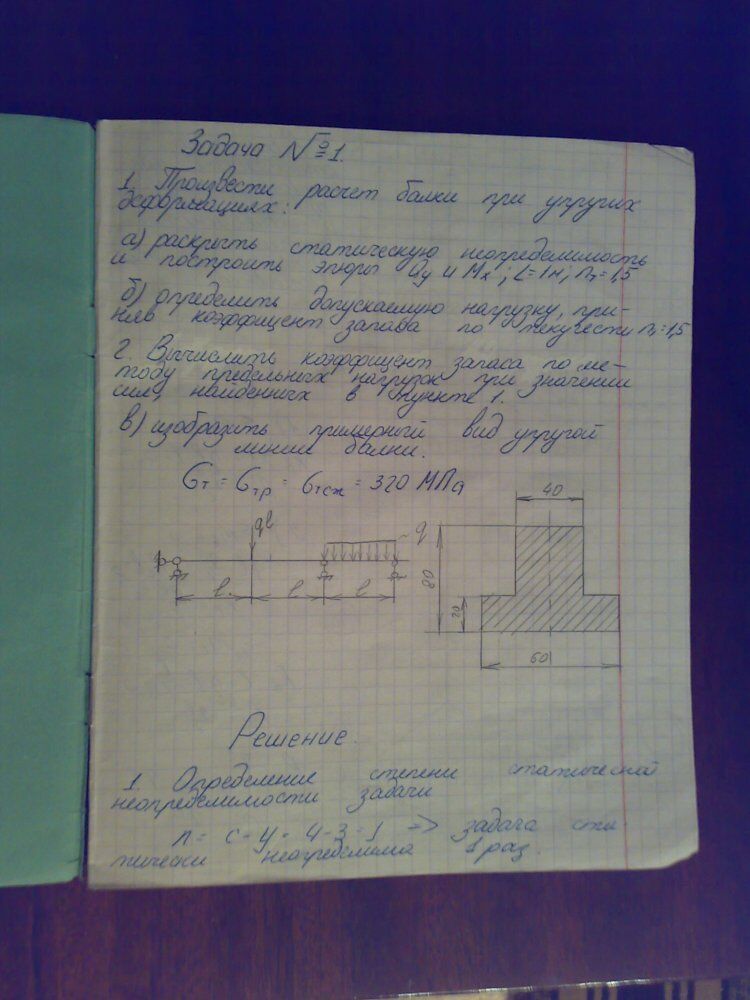 Задача №1.
1. Произвести расчет балки при упругих
деформациях:
а) раскрыть статическую неопределимость
и построить эпюры Qy и Mx; L=1м; nт=1,5
б) определить допускаемую нагрузку, при-
няв коэффициент запаса по текучести nт=1,5
2. Вычислить коэффициент запаса по ме-
тоду предельных нагрузок при значении
сил, найденных в пункте 1.
в) изобразить примерный вид упругой
линии балки.
σт = σтр = σтсж = 320 МПа
40
ql
q
80
20
l
l
l
60
Решение.
1. Определение степени статической
неопределимости задачи
n = с - у = 4-3 = 1 => задача ста-
тически неопределима 1 раз.